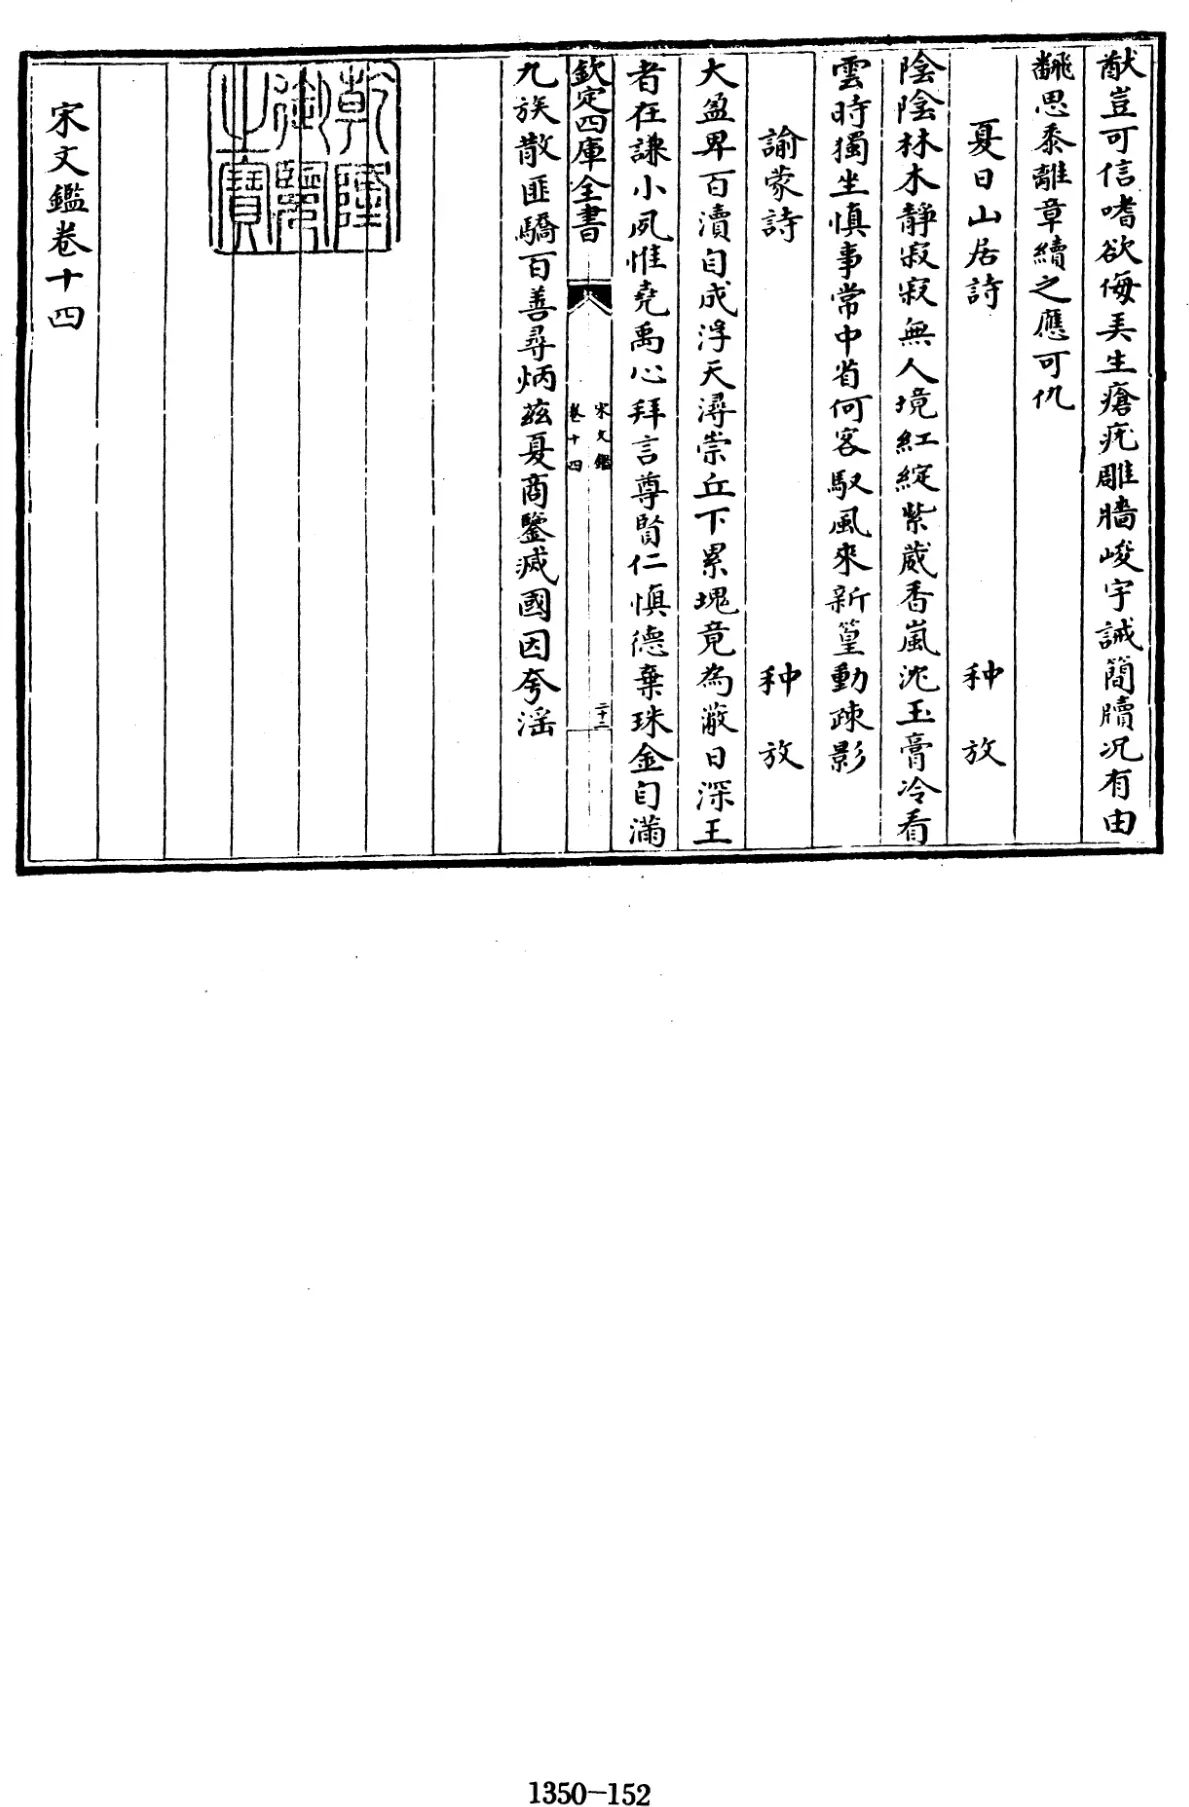 猷豈可信嗜欲侮美生瘡疣雕牆峻宇誡簡牘况有由
翻思黍離章續之應可仇
夏日山居詩 种放
陰陰林木靜寂寂無人境紅綻紫葳香嵐沈玉膏冷看
雲時獨坐慎事常中省何客馭風來新篁動疎影
諭蒙詩 种放
大盈卑百瀆自成浮天潯崇丘下累塊竟為蔽日深王
者在謙小夙惟堯禹心拜言尊賢仁慎德棄珠金自滿
欽定四庫全書
宋文鑑
卷十四
二十二
九族散匪驕百善尋炳茲夏商鑒滅國因夸滛
乾隆御覽之寶
宋文鑑卷十四
1350-152